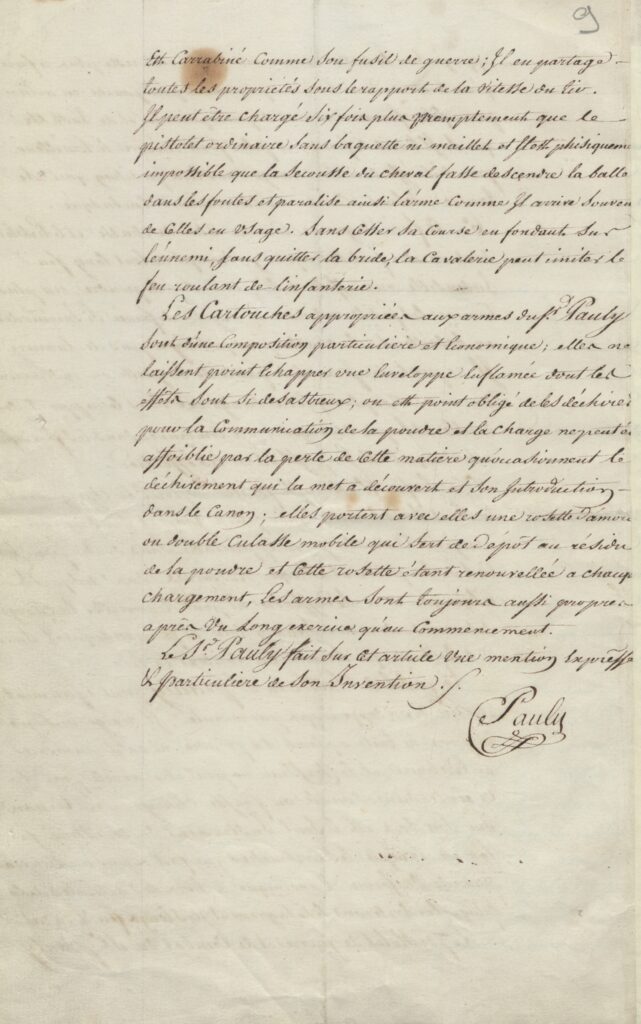 9
Est Carrabiné Comme Son fusil de guerre; Il en partage
toutes les propriétés sous le rapport de la vitesse du tir.
Il peut être chargé Six fois plus promptement que le
pistolet ordinaire Sans baguette ni maillet et Il est phisiqueme
impossible que la Secousse du cheval fasse descendre la balle
dans les fontes et paralise ainsi l'arme Comme Il arrive Souven
de Celles en Usage. Sans Cesser Sa Course en fondant Sur
l'énnemi, Sans quitter la bride, la Cavalerie peut imiter le
feu roulant de l'infanterie.
Les Cartouches appropriées aux armes du Sr. Pauly
Sont d'une Composition particulière et Economique; elles ne
laissent point Echapper une Enveloppe Enflamée dont les
éffets Sont Si desastreux; on est point obligé de les déchirer
pour la Communication de la poudre et la charge ne peut êt
affoiblie par la perte de Cette matière qu'occasionnent le
déchirement qui la met à découvert et Son Introduction
dans le Canon; elles portent avec elles une rosette d'amorc
ou double Culasse mobile qui Sert de dépôt au résidu
de la poudre et Cette rosette étant renouvellée a chaqu
chargement, Les armes Sont toujours aussi propres
après Un Long exercice qu'au Commencement.
Le Sr. Pauly fait Sur Cet article Une mention Expresse
& particulière de Son Invention.
Pauly